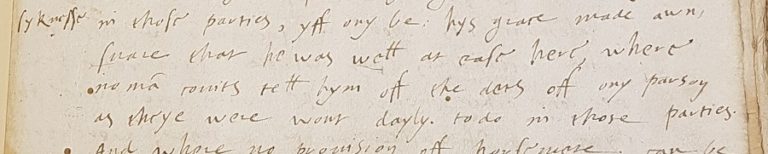 syknesse in those parties, yff ony be: hys grace made awn,
suare that he was well at ease here, where
no mā comits tell hym off the dets off ony parson
as theye were wont dayly. to do in those parties.
And where no provision off horsemeate can be